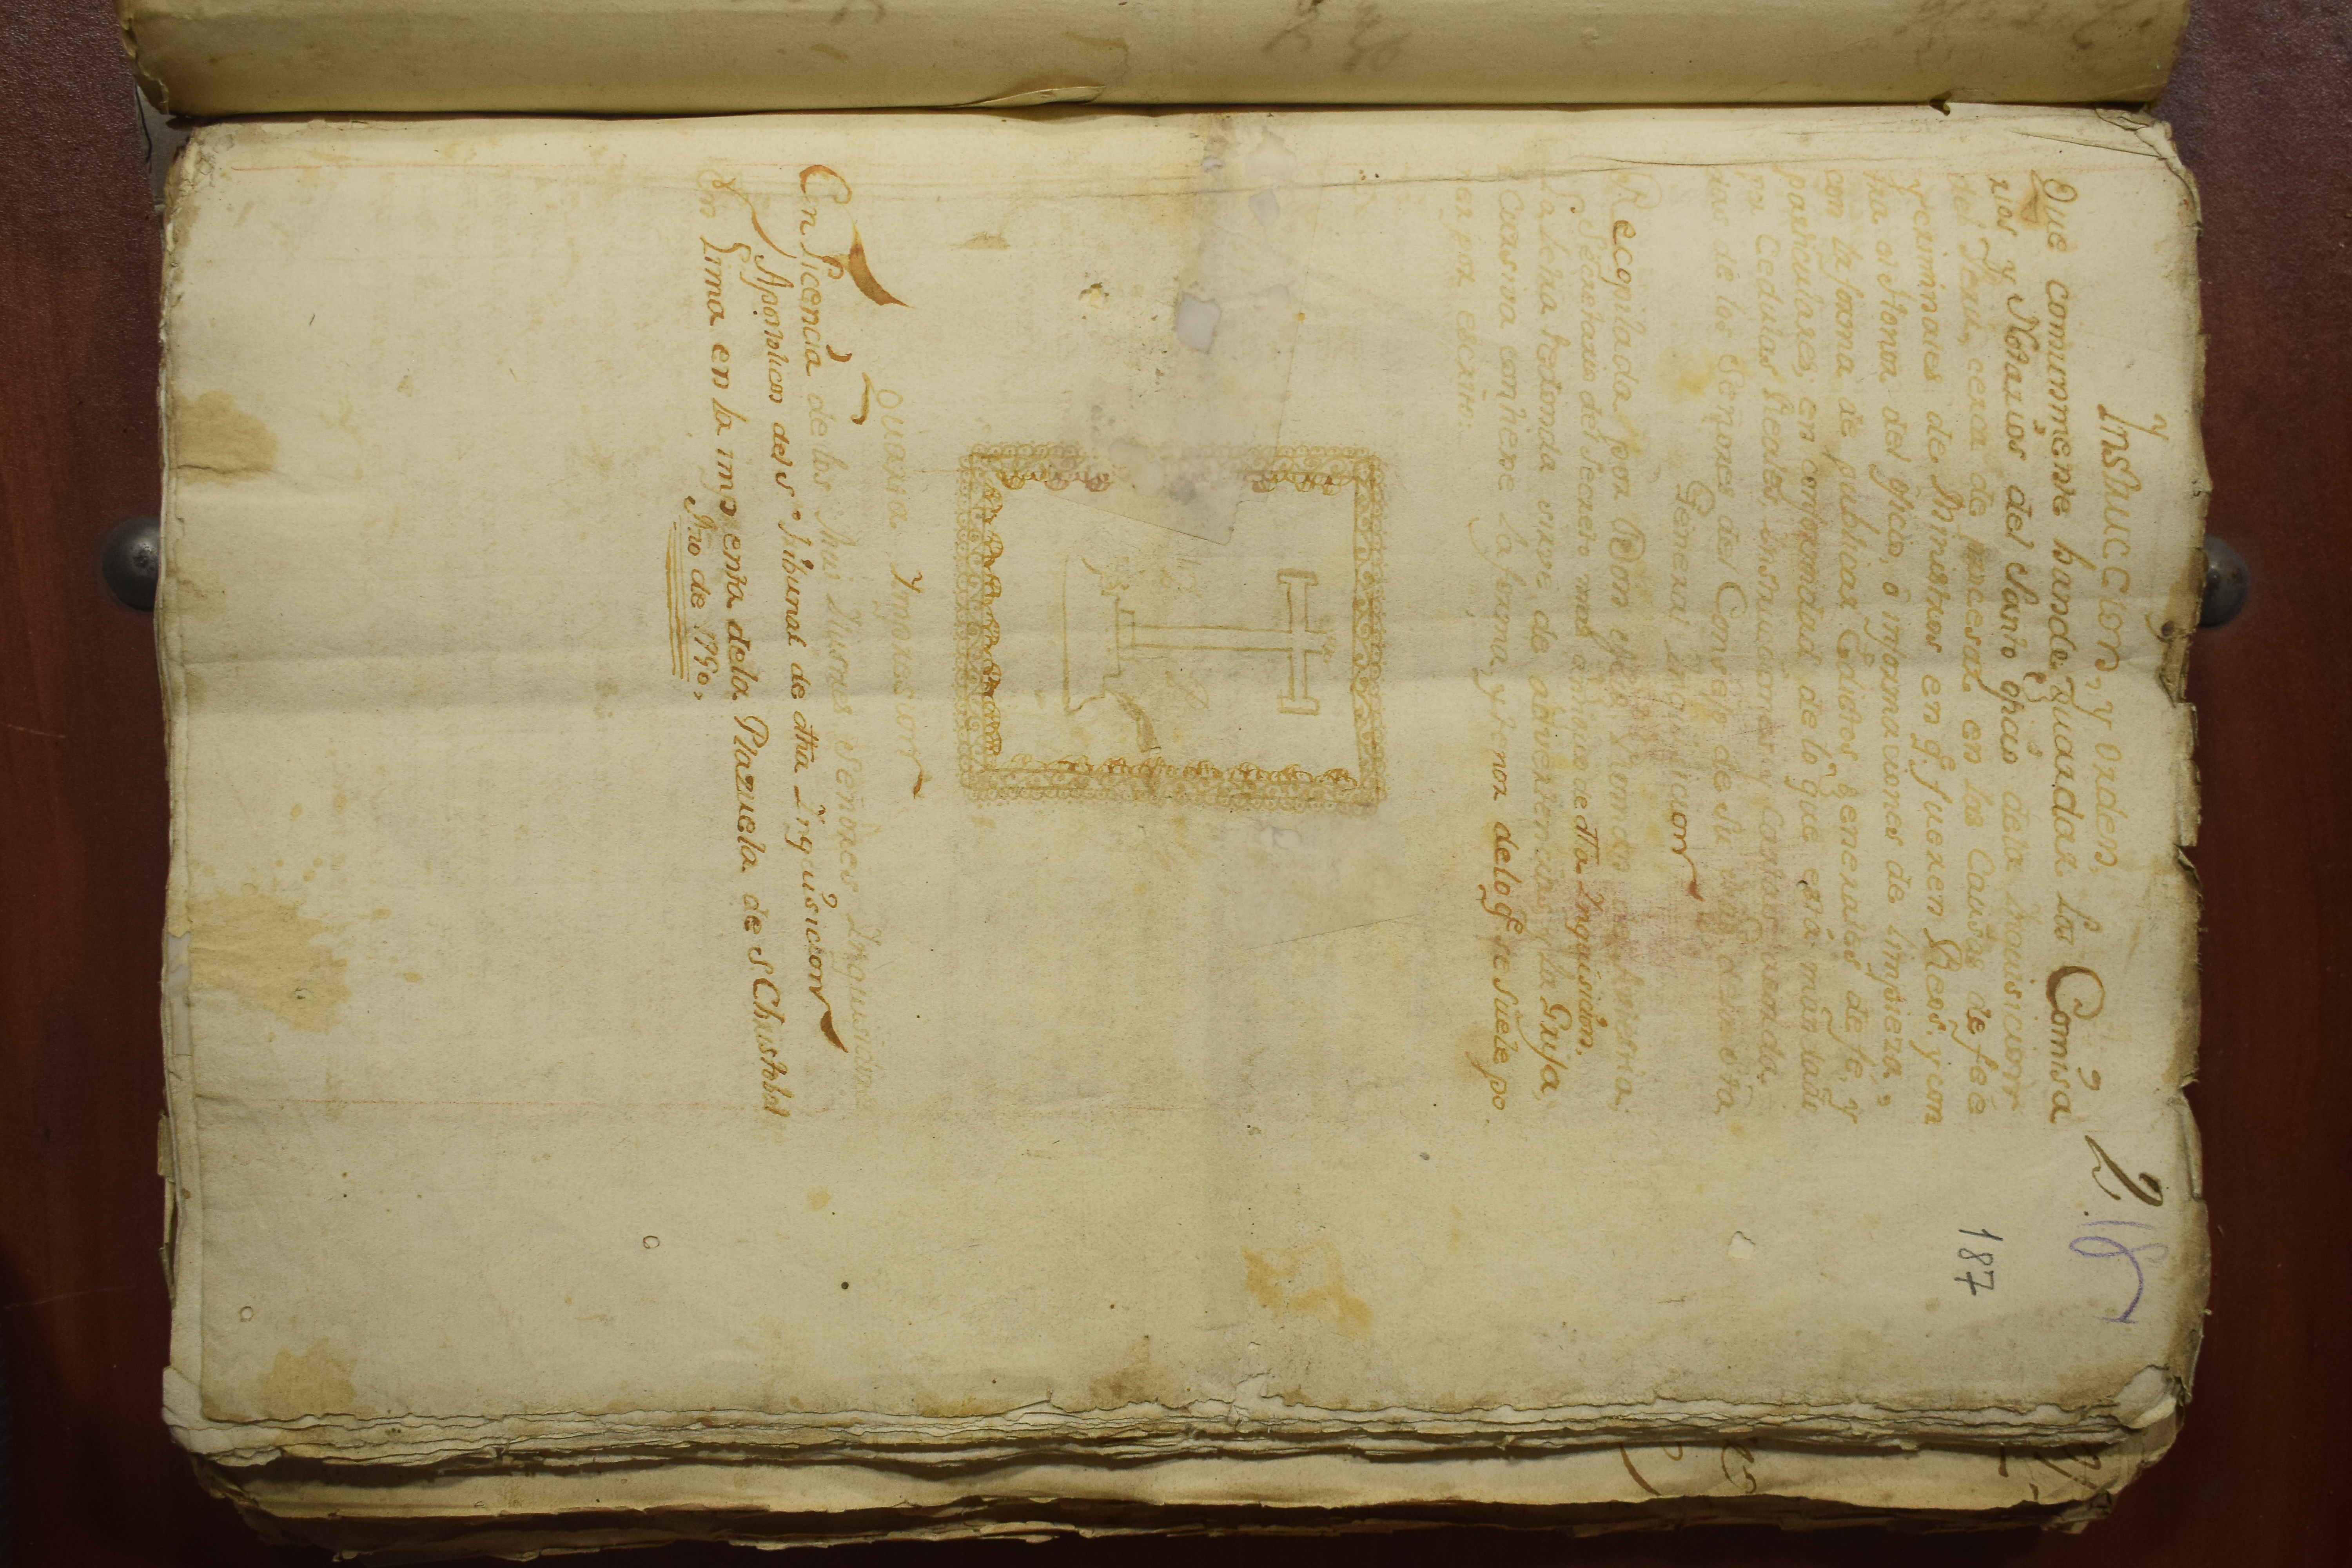 2.
18
187
Instruccion, y orden,
Que comunmente hande guardar los Comisa
rios y Notarios del Santo ofiçio dela Inquisicion
del Peru, cerca de procesar en las Causas de feé
y criminales de Ministros en q.e fueren Reos, y con
tra el Honor del oficio, ó informaciones de limpieza,
con la forma de publicar Edictos generales de fe, y
particulares, en conformidad de lo que está mandado
por Cedulas Reales, instrucciones y Cartas
de los Señores del Consejo de su
General Inquisicion
Recopilada por Don
Secretario del Secreto mas antiguo de dha Inquisicion.
La letra redonda sirve de advertencias, y la Grifa,
ó Cursiva contiene la forma, y tenor delo q.e se suele po
ner por escrito.
Quarta Impresion
Con licencia de los mui Ilustres Señores Inquisidores
Apostolicos del S.to Tribunal de dha Inquisicion
En Lima en la imprenta dela Plazuela de S Christobal
Año de 1790,